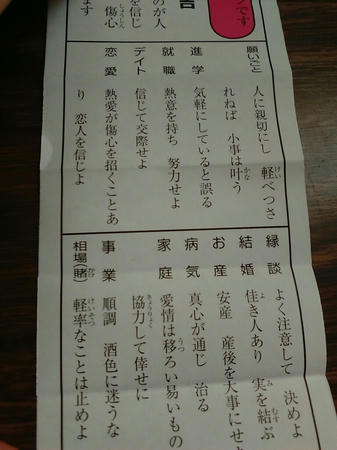 です
告
のが人
を信じ
傷心
ます
願いごと 人に親切にし 軽べつさ
れねば 小事は叶う
進学 気軽にしていると誤る
就職 熱意を持ち 努力せよ
デイト 信じて交際せよ
恋愛 熱愛が傷心を招くことあ
り 恋人を信じよ
縁談 よく注意して 決めよ
結婚 佳き人あり 実を結ぶ
お産 安産 産後を大事にせ
病気 真心が通じ 治る
家庭 愛情は移ろい易いもの
協力して倖せに
事業 順調 酒色に迷うな
相場(賭) 軽率なことは止めよ